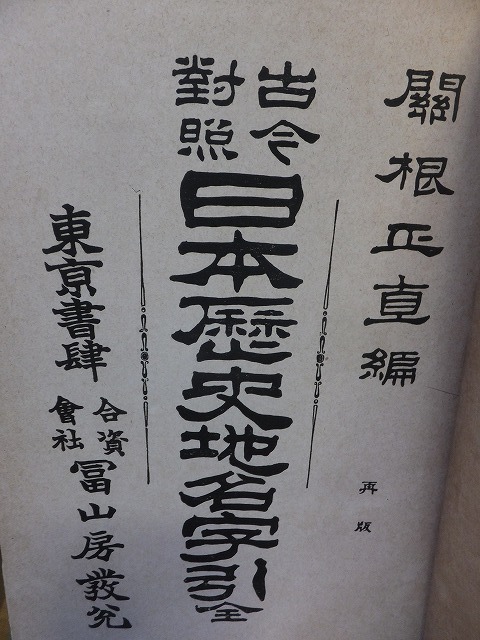 關根正直編
再版
古今
對照
日本歷史地名字引全
東京書肆
合資
會社
冨山房發兌